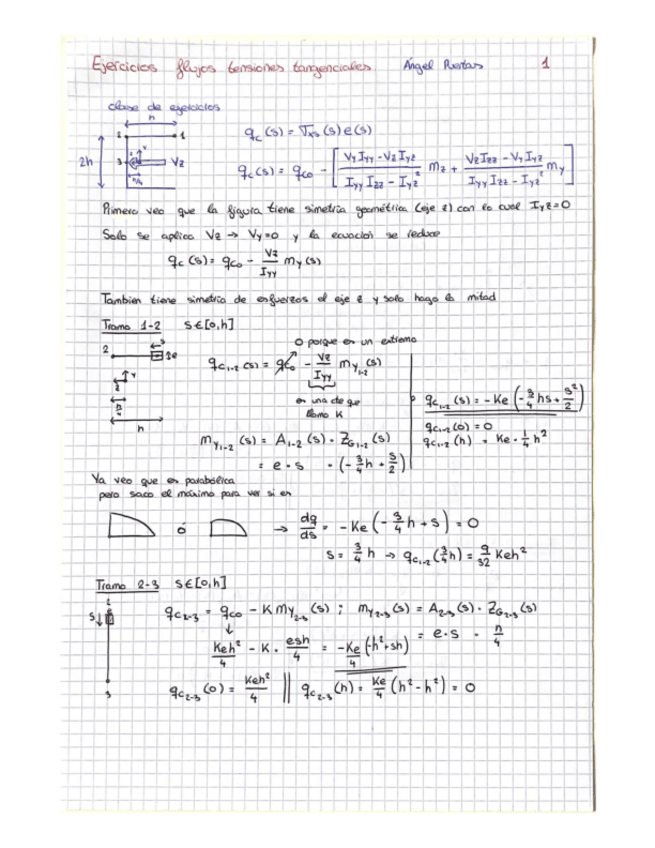 Ejercicios flujos tensiones tangenciales Ángel Puertas 1
clase de ejercicios
h
2 1
2h 3 Y Vz
h/4
q_c (s) = τ_xs (s) e(s)
q_c (s) = q_co - [ (Vy Iyy - Vz Iyz)/(Iyy Izz - Iyz²) m_z + (Vz Izz - Vy Iyz)/(Iyy Izz - Iyz²) m_y ]
Primero veo que la figura tiene simetria geométrica (eje z) con lo cual Iyz=0
Solo se aplica Vz → Vy=0 y la ecuación se reduce
q_c (s) = q_co - Vz/Iyy m_y (s)
Tambien tiene simetria de esfuerzos el eje z y solo hago la mitad
Tramo 1-2 S∈[0,h]
2 s 1 e
Y
z
h/4
h
0 porque es un extremo
q_c1-2 (s) = q_co - Vz/Iyy m_y1-2 (s)
es una cte que
llamo K
m_y1-2 (s) = A_1-2 (s) · Z_G1-2 (s)
= e · s · (-3/4 h + s/2)
q_c1-2 (s) = -Ke (-3/4 hs + s²/2)
q_c1-2 (0) = 0
q_c1-2 (h) = Ke · 1/4 h²
Ya veo que es parabólica
pero saco el máximo para ver si es
ó → dq/ds = -Ke (-3/4 h + s) = 0
s = 3/4 h → q_c1-2 (3/4 h) = 9/32 Keh²
Tramo 2-3 S∈[0,h]
2
s
3
q_c2-3 = q_co - K m_y2-3 (s) ; m_y2-3 (s) = A_2-3 (s) · Z_G2-3 (s)
= e · s · h/4
↓
Keh²/4 - K · esh/4 = -Ke/4 (-h² + sh)
q_c2-3 (0) = Keh²/4 || q_c2-3 (h) = Ke/4 (h² - h²) = 0